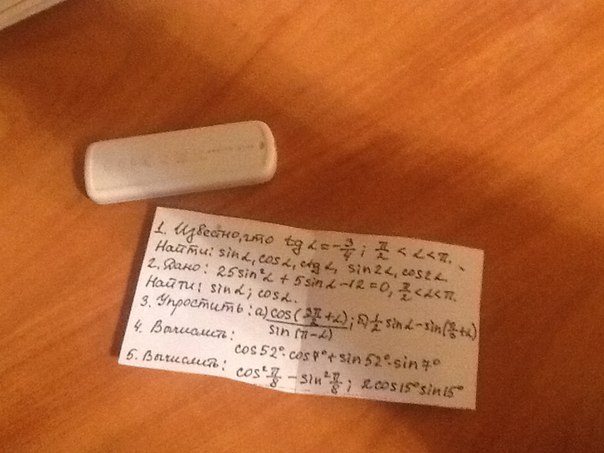 1. Известно, что tg α = -3/4; π/2 < α < π.
Найти: sin α, cos α, ctg α, sin 2α, cos 2α.
2. Дано: 25 sin² α + 5 sin α - 12 = 0, π/2 < α < π.
Найти: sin α; cos α.
3. Упростить: а) cos(3π/2 + α)/sin(π - α); б) 1/2 sin α - sin(π/3 + α)
4. Вычислить:
cos 52° · cos 7° + sin 52° · sin 7°
5. Вычислить: cos² π/8 - sin² π/8; 2 cos 15° sin 15°